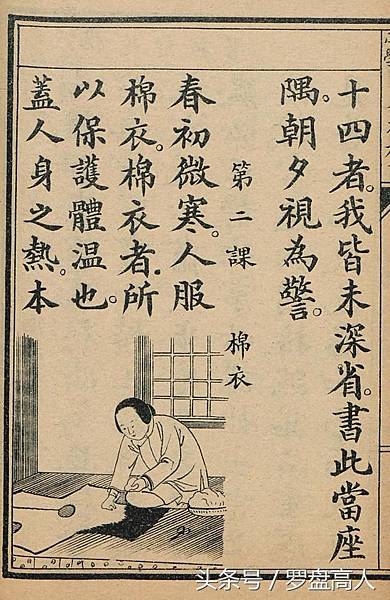 十四者。我皆未深省。書此當座
隅。朝夕視為警。
第二課 棉衣
春初微寒。人服
棉衣。棉衣者。所
以保護體溫也。
蓋人身之熱。本
头条号 / 罗盘高人